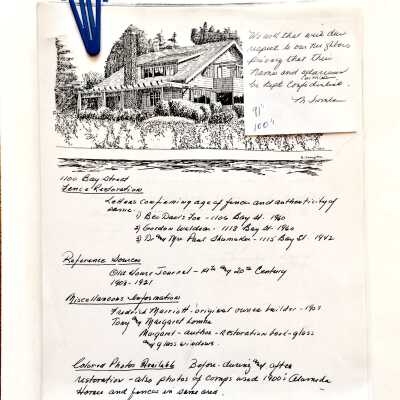 We ask that with due
respect to our neighbors
privacy that their
names and addresses
be kept confidential.
91'
100's
1100 Bay Street
Fence Restoration
Letters confirming age of fence and authenticity of
same.
1) Bev Davis Fox - 1106 Bay St. 1960
2) Gordon Waldear - 1112 Bay St. 1960
3) Dr and Mrs Paul Shumaker - 1115 Bay St. 1942
Reference Sources
Old House Journal - 19th and 20th Century
1908 - 1921
Miscellaneous Information
Fredrick Marriott - original owner builder - 1908
Tony and Margaret
Margaret - author - restoration book - glass
and glass windows.
Colored Photos Available Before - during and after
restoration - also photos of comps used 1900's Alameda
Homes and fences in same area.